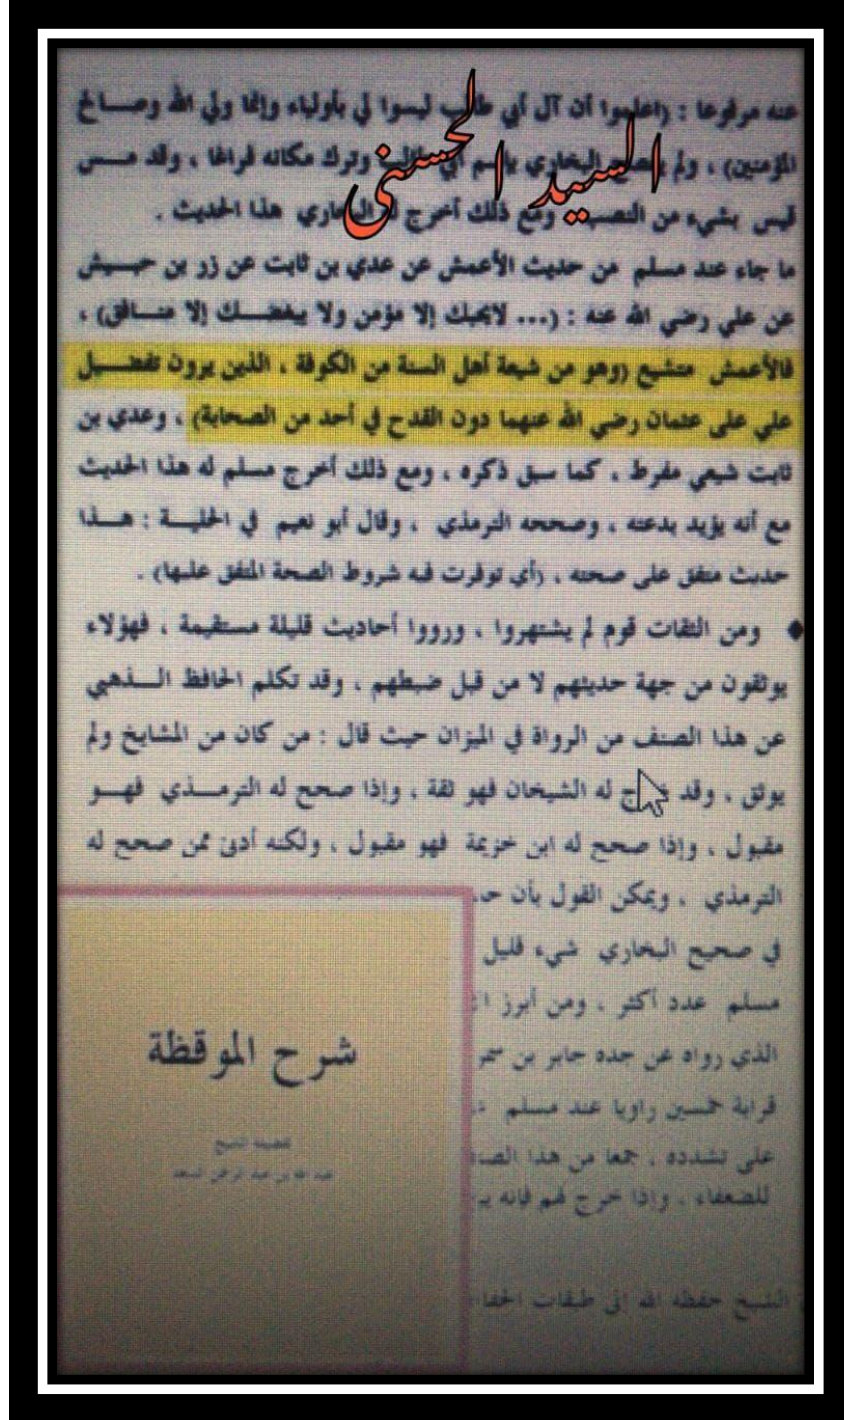 عنه مرفوعا : (اعلموا أن آل أبي طالب ليسوا لي بأولياء وإنما ولي الله وصالح
المؤمنين) ، ولم يصرح البخاري باسم أبي طالب وترك مكانه فراغا ، وقد مس
قيس بشيء من النصب ومع ذلك أخرج له البخاري هذا الحديث .
السيد الحسني
ما جاء عند مسلم من حديث الأعمش عن عدي بن ثابت عن زر بن حبيش
عن علي رضي الله عنه : (... لايحبك إلا مؤمن ولا يبغضك إلا منافق) ،
فالأعمش متشيع (وهو من شيعة أهل السنة من الكوفة ، الذين يرون تفضيل
علي على عثمان رضي الله عنهما دون القدح في أحد من الصحابة) ، وعدي بن
ثابت شيعي مفرط ، كما سبق ذكره ، ومع ذلك أخرج مسلم له هذا الحديث
مع أنه يؤيد بدعته ، وصححه الترمذي ، وقال أبو نعيم في الحلية : هذا
حديث متفق على صحته ، (أي توفرت فيه شروط الصحة المتفق عليها) .
♦ ومن الثقات قوم لم يشتهروا ، ورووا أحاديث قليلة مستقيمة ، فهؤلاء
يوثقون من جهة حديثهم لا من قبل ضبطهم ، وقد تكلم الحافظ الذهبي
عن هذا الصنف من الرواة في الميزان حيث قال : من كان من المشايخ ولم
يوثق ، وقد خرج له الشيخان فهو ثقة ، وإذا صحح له الترمذي فهو
مقبول ، وإذا صحح له ابن خزيمة فهو مقبول ، ولكنه أدنى ممن صحح له
الترمذي ، ويمكن القول بأن
في صحيح البخاري شيء قليل
مسلم عدد أكثر ، ومن أبرز
الذي رواه عن جده جابر بن سمر
قرابة خمسين راويا عند مسلم
على تشدده ، جمعا من هذا
للضعفاء ، وإذا خرج لهم فإنه
الشيخ حفظه الله إلى طبقات
شرح الموقظة
لفضيلة الشيخ
عبد الله بن عبد الرحمن السعد